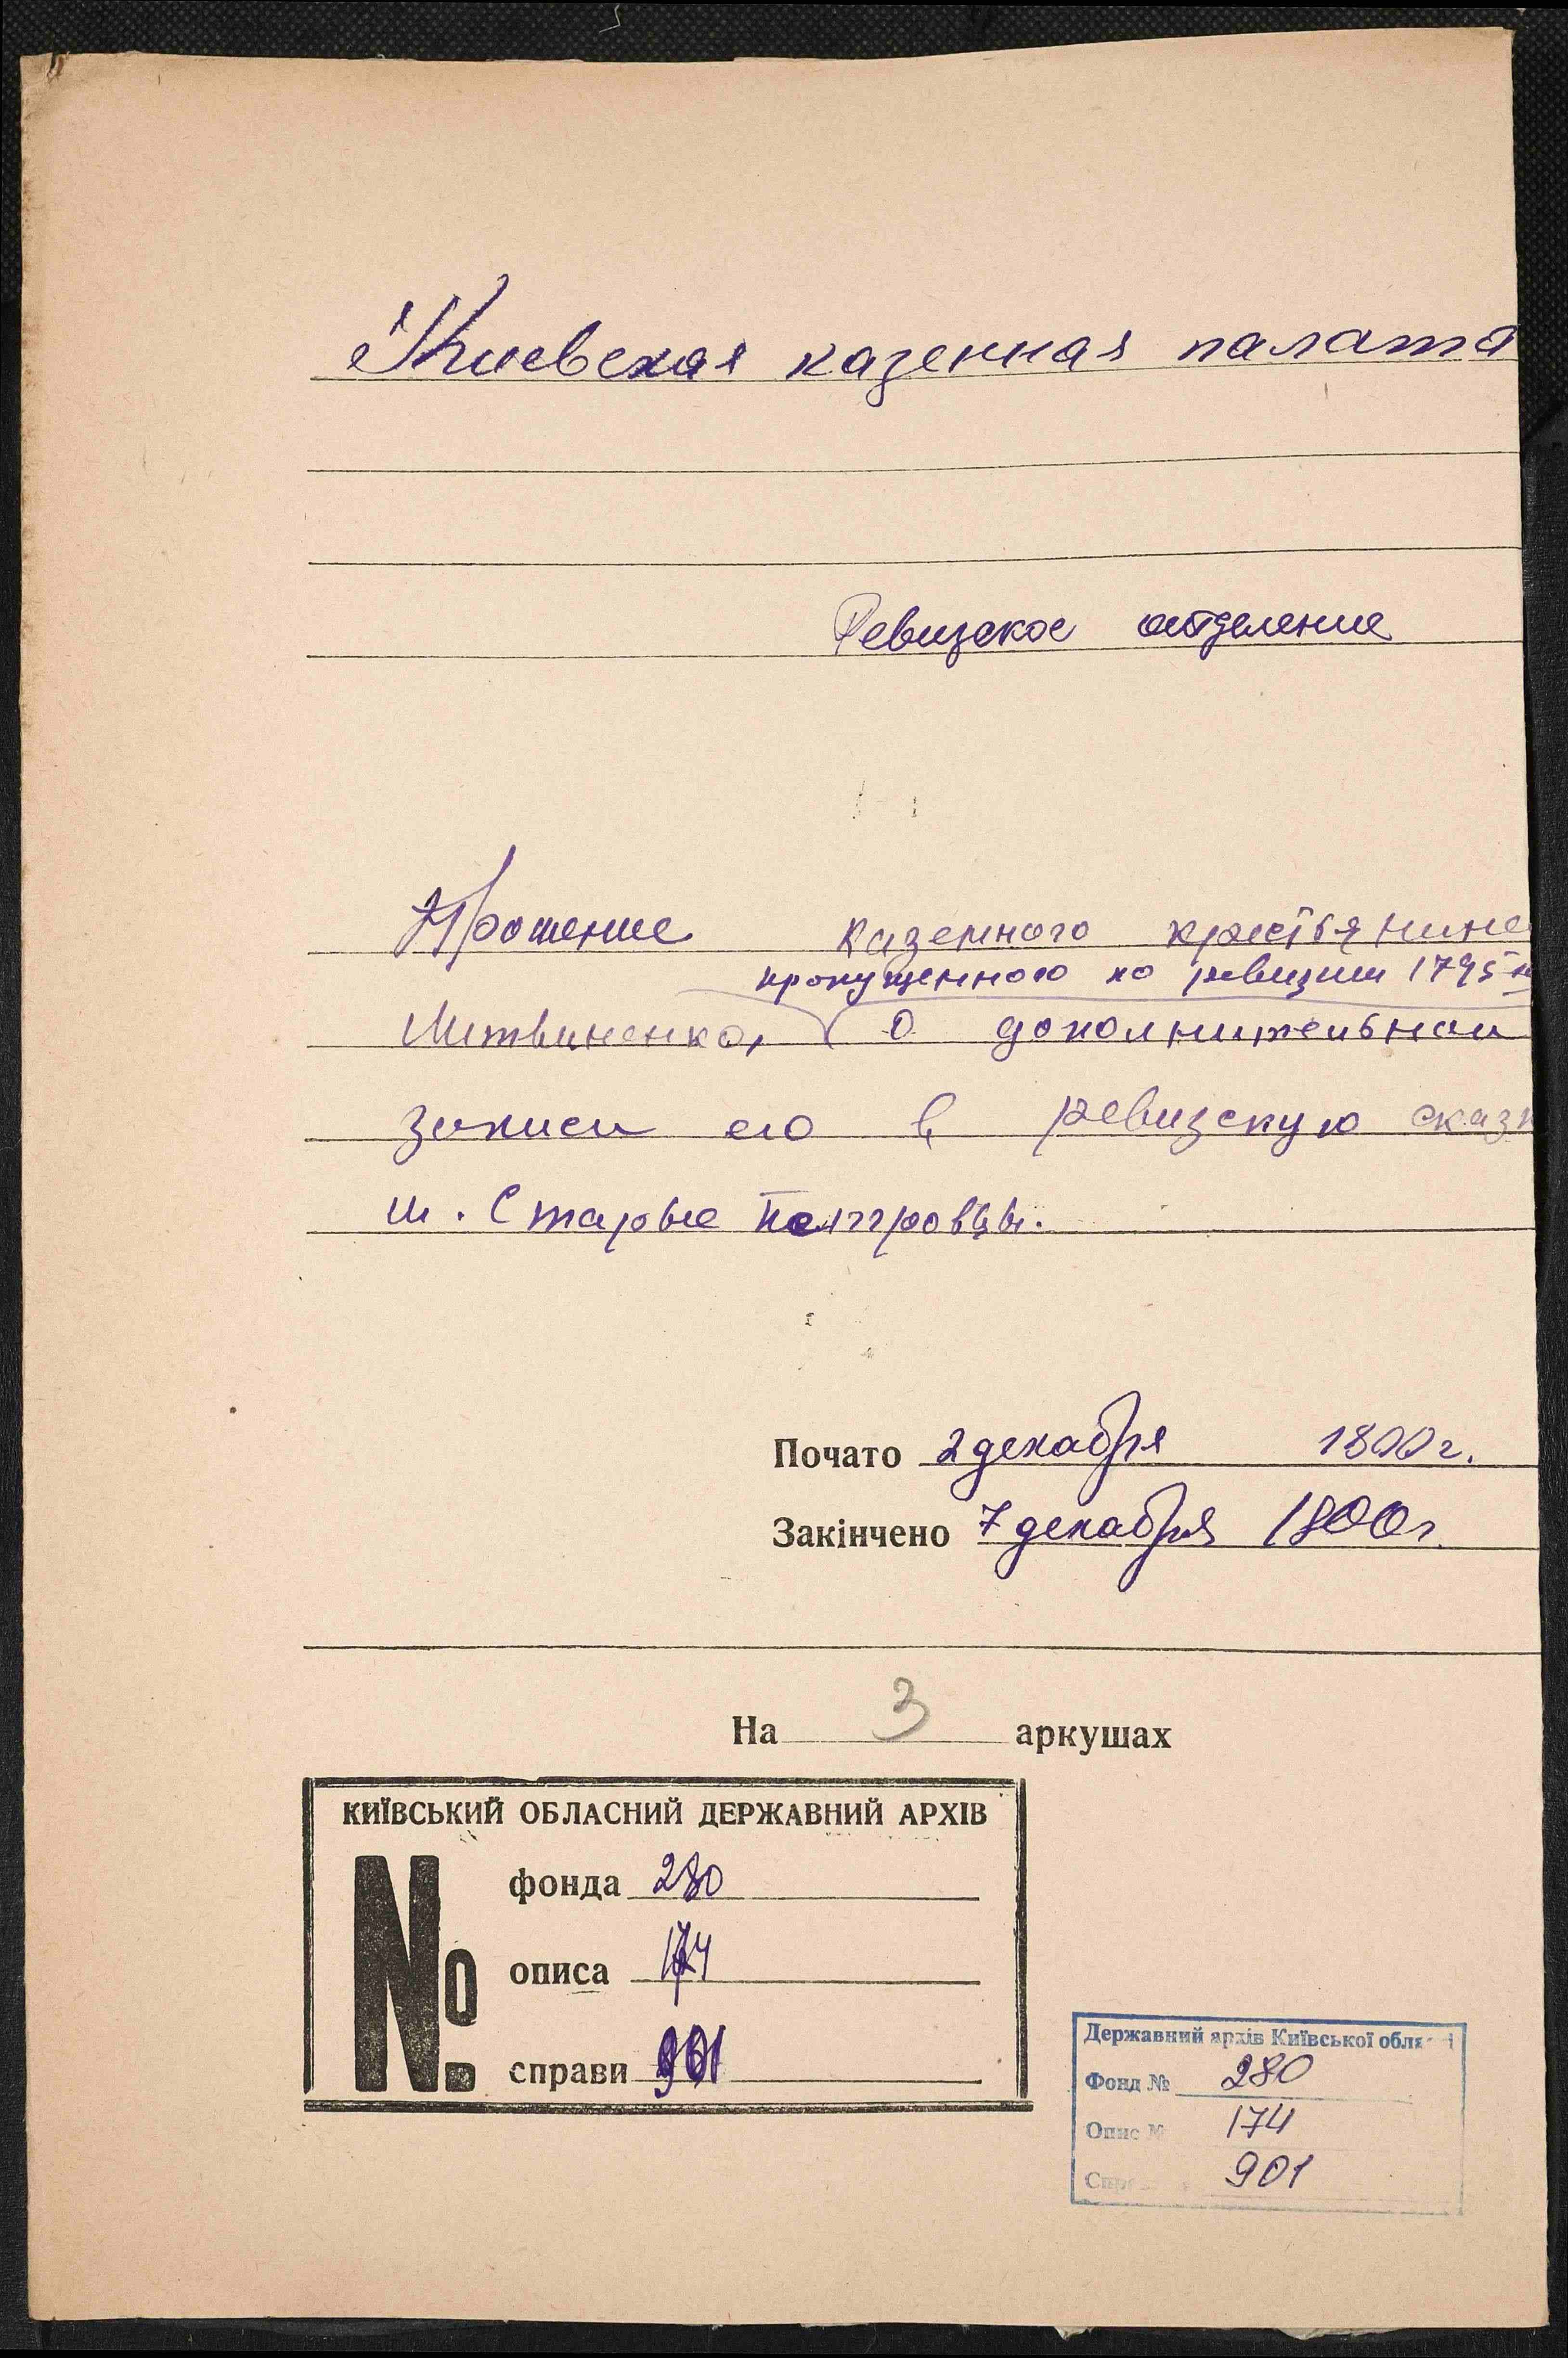 Киевская казенная палата
Ревизское отделение
Прошение казенного крестьянина
пропущенного по ревизии 1795
Литвиненко, о дополнительной
записи его в ревизскую сказк
м. Старые Петровцы.
Почато 2 декабря 1800 г.
Закінчено 7 декабря 1800 г.
На 3 аркушах
КИЇВСЬКИЙ ОБЛАСНИЙ ДЕРЖАВНИЙ АРХІВ
№
фонда 280
описа 174
справи 901
Державний архів Київської області
Фонд № 280
Опис № 174
901